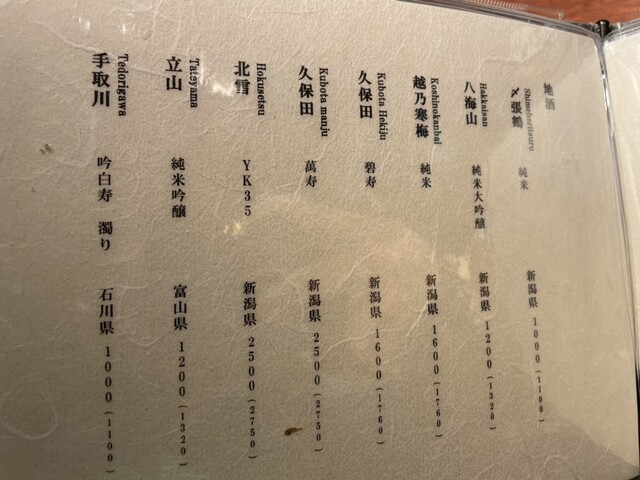 地酒
Shimeharitsuru
〆張鶴 純米 新潟県 1000(1100)
Hakkaisan
八海山 純米大吟醸 新潟県 1200(1320)
Koshinokanbai
越乃寒梅 純米 新潟県 1600(1760)
Kubota Hekiju
久保田 碧寿 新潟県 1600(1760)
Kubota manju
久保田 萬寿 新潟県 2500(2750)
Hokusetsu
北雪 YK35 新潟県 2500(2750)
Tateyama
立山 純米吟醸 富山県 1200(1320)
Tedorigawa
手取川 吟白寿 濁り 石川県 1000(1100)